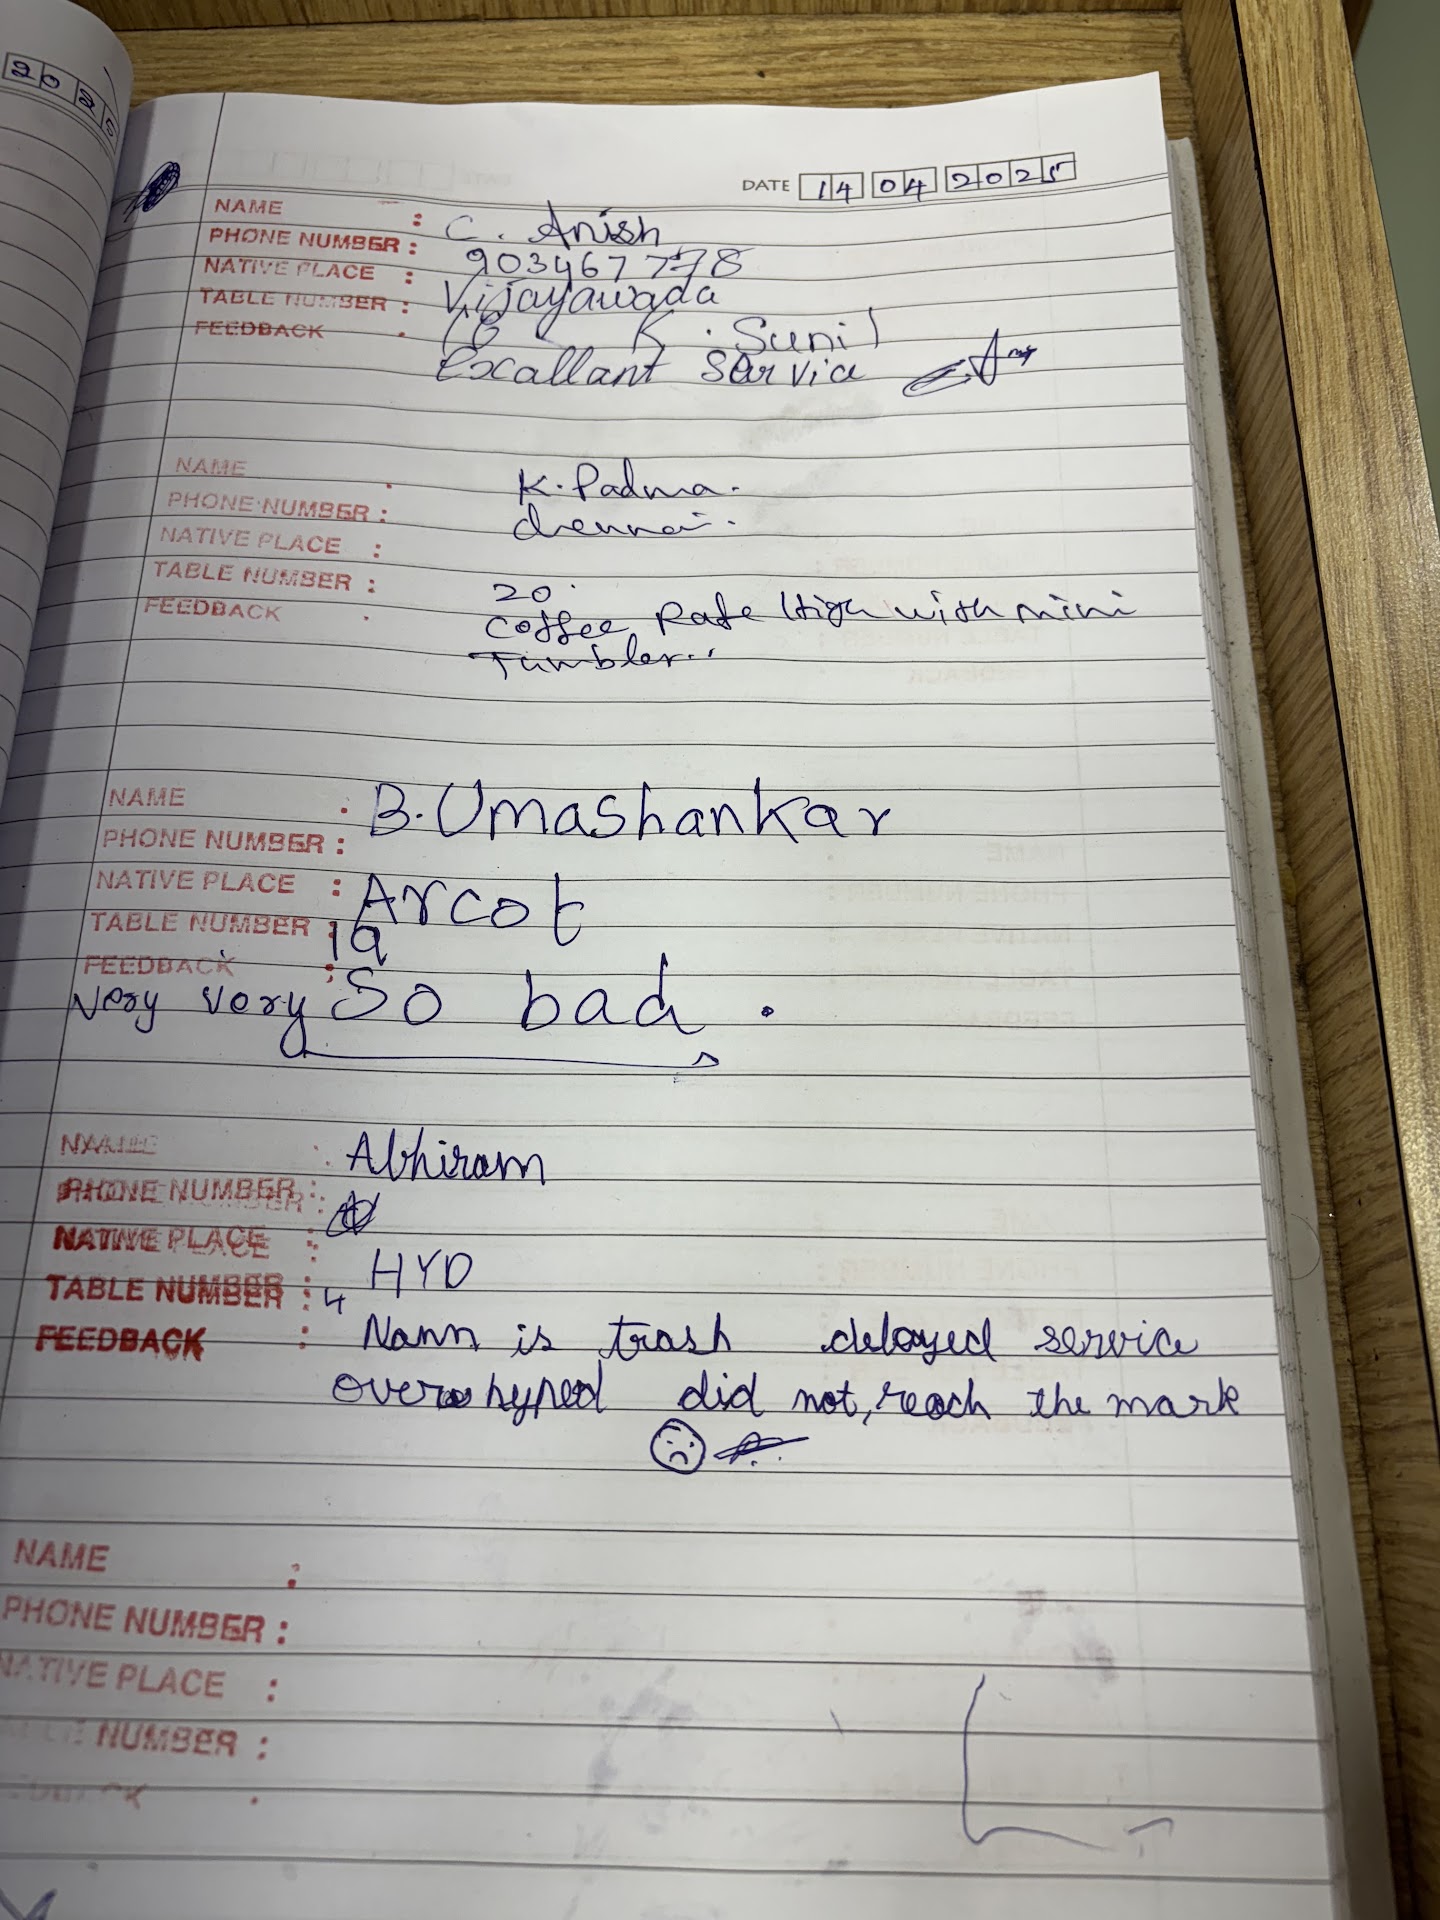 2025
DATE 14 04 2025
NAME : C. Anish
PHONE NUMBER : 9034677778
NATIVE PLACE : Vijayawada
TABLE NUMBER : K. Sunil
FEEDBACK : Excallant Service
NAME : K. Padma.
PHONE NUMBER : Chennai.
NATIVE PLACE :
TABLE NUMBER : 20.
FEEDBACK : Coffee Rate High with mini
Tumbler..
NAME : B. Umashankar
PHONE NUMBER :
NATIVE PLACE : Arcot
TABLE NUMBER : 19
FEEDBACK :
Very Very So bad .
NAME : Abhiram
PHONE NUMBER :
NATIVE PLACE : HYD
TABLE NUMBER : 4
FEEDBACK : Nann is trash delayed service
overhyped did not, reach the mark
NAME :
PHONE NUMBER :
NATIVE PLACE :
NUMBER :